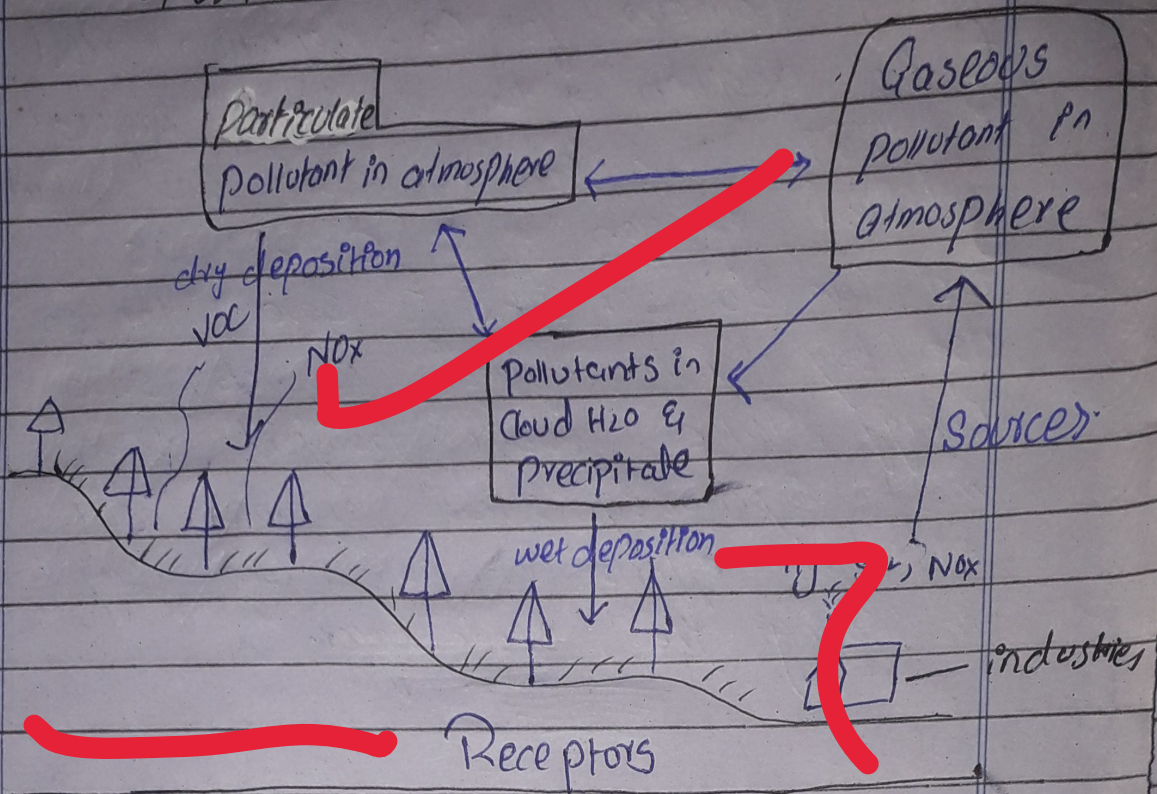 Particulate
Pollutant in atmosphere
Gaseous
Pollutant in
atmosphere
dry deposition
VOC
NOx
Pollutants in
Cloud H2O &
Precipitate
Sources
wet deposition
NOx
industries
Receptors